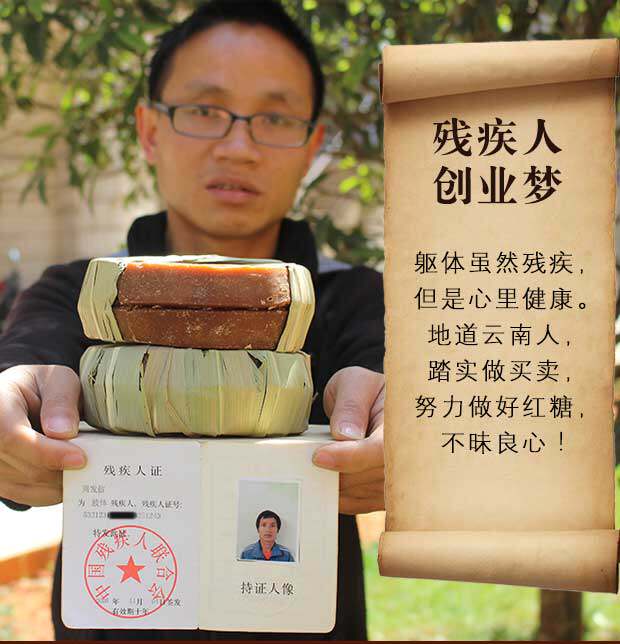 残疾人
创业梦
躯体虽然残疾，
但是心里健康。
地道云南人，
踏实做买卖，
努力做好红糖，
不昧良心！
残疾人证
为 肢体 残疾人、残疾人证号:
特发此证
中国残疾人联合会
年 11月 签发
有效期十年
持证人像